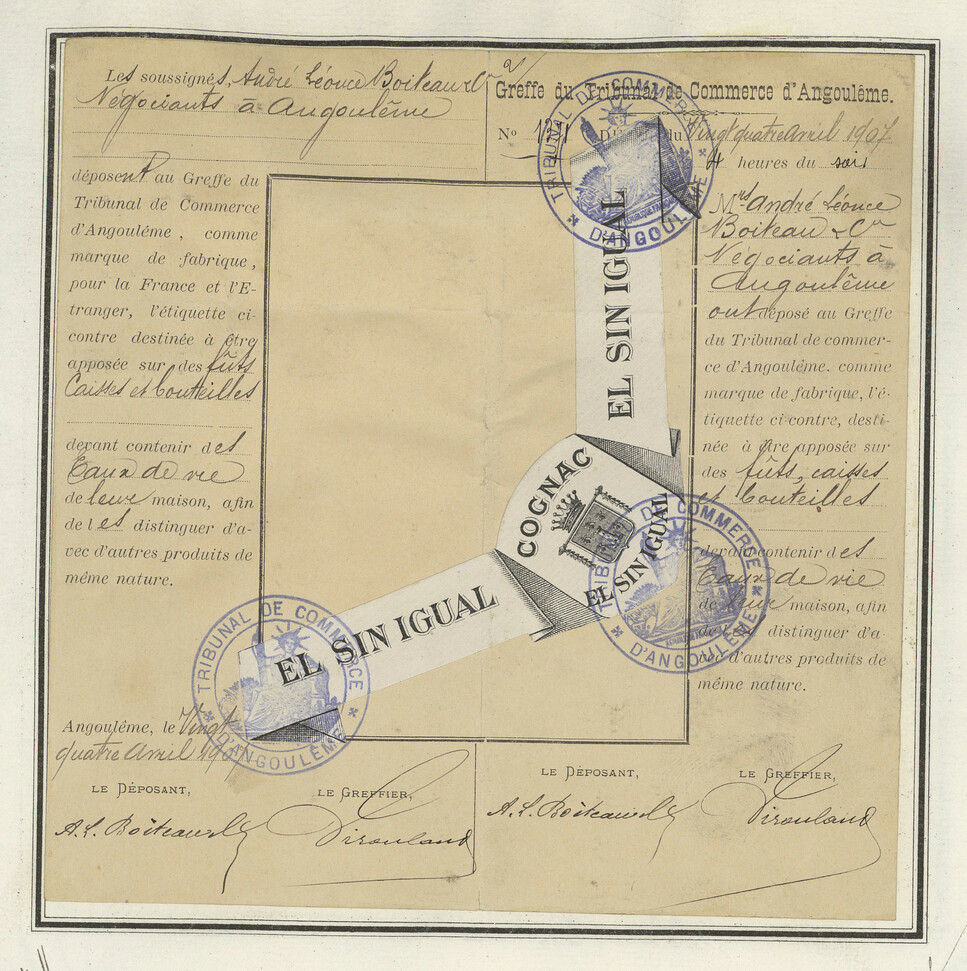 Les soussignés, André Léonce Boiteau & Cie
Négociants à Angoulême
déposent au Greffe du
Tribunal de Commerce
d'Angoulême, comme
marque de fabrique,
pour la France et l'E-
tranger, l'étiquette ci-
contre destinée à être
apposée sur des fûts
Caisses et bouteilles
devant contenir des
Eaux de vie
de leur maison, afin
de les distinguer d'a-
vec d'autres produits de
même nature.
Angoulême, le Vingt
quatre avril 1907
LE DÉPOSANT,
LE GREFFIER,
A. L. Boiteau & Cie
EL SIN IGUAL
COGNAC
EL SIN IGUAL
EL SIN IGUAL
TRIBUNAL DE COMMERCE
D'ANGOULÊME
TRIBUNAL DE COMMERCE
D'ANGOULÊME
TRIBUNAL DE COMMERCE
D'ANGOULÊME
Greffe du Tribunal de Commerce d'Angoulême.
No du Vingt quatre avril 1907
4 heures du soir
Mrs André Léonce
Boiteau & Cie
Négociants à
Angoulême
ont déposé au Greffe
du Tribunal de commer-
ce d'Angoulême. comme
marque de fabrique, l'é-
tiquette ci-contre, desti-
née à être apposée sur
des fûts, caisses
et bouteilles
devant contenir des
Eaux de vie
de leur maison, afin
de les distinguer d'a-
vec d'autres produits de
même nature.
LE DÉPOSANT,
LE GREFFIER,
A. L. Boiteau & Cie